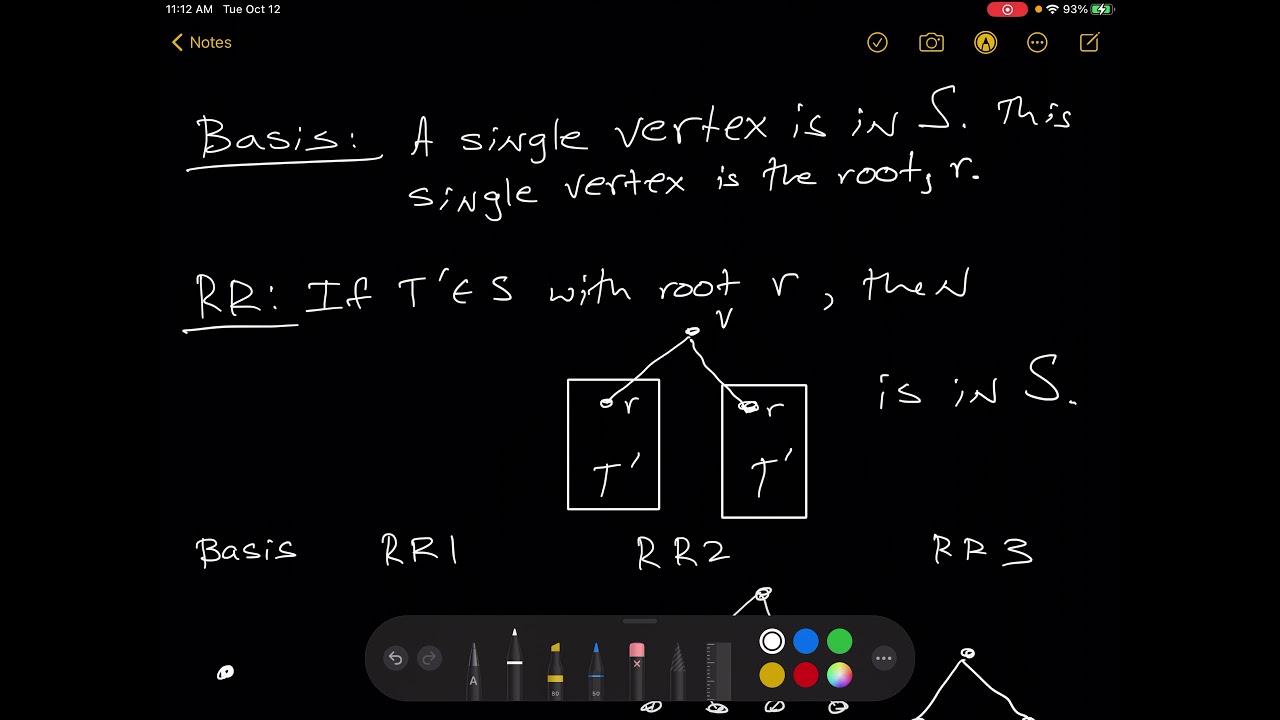 11:12 AM Tue Oct 12
93%
Notes
Basis: A single vertex is in S. This
single vertex is the root, r.
RR: If T'∈S with root r, then
v
is in S.
r
r
T'
T'
Basis RR1 RR2 RR3
A
80
50